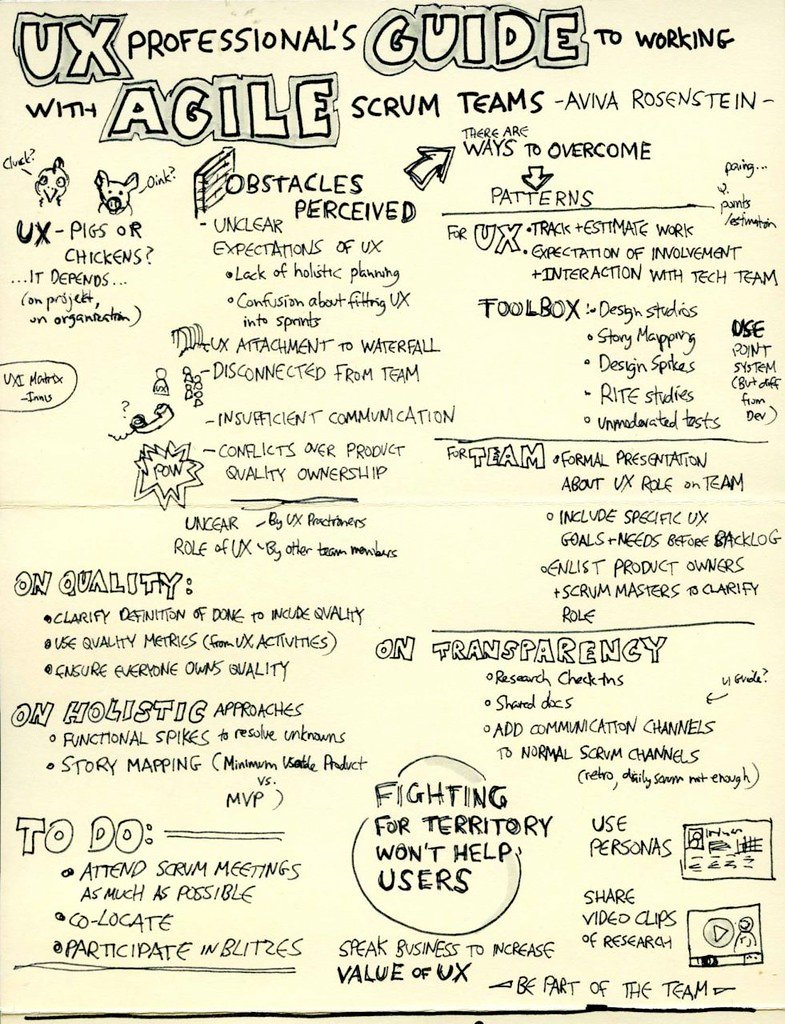 UX PROFESSIONAL'S GUIDE TO WORKING
WITH AGILE SCRUM TEAMS - AVIVA ROSENSTEIN -
Cluck?
Oink?
UX - PIGS OR
CHICKENS?
...IT DEPENDS...
(on project,
on organization)
UXI Matrix
- Innis
OBSTACLES
PERCEIVED
- UNCLEAR
EXPECTATIONS OF UX
• Lack of holistic planning
• Confusion about fitting UX
into sprints
- UX ATTACHMENT TO WATERFALL
UX
- DISCONNECTED FROM TEAM
?
- INSUFFICIENT COMMUNICATION
POW
- CONFLICTS OVER PRODUCT
QUALITY OWNERSHIP
UNCEAR - By UX Practitioners
ROLE OF UX - By other team members
THERE ARE
WAYS TO OVERCOME
PATTERNS
points
/estimation
FOR UX • TRACK + ESTIMATE WORK
• EXPECTATION OF INVOLVEMENT
+ INTERACTION WITH TECH TEAM
TOOLBOX: - Design studios
• Story Mapping
• Design Spikes
• RITE studies
• unmoderated tests
USE
POINT
SYSTEM
(But diff
from
Dev)
FOR TEAM • FORMAL PRESENTATION
ABOUT UX ROLE on TEAM
• INCLUDE SPECIFIC UX
GOALS + NEEDS BEFORE BACKLOG
• ENLIST PRODUCT OWNERS
+ SCRUM MASTERS TO CLARIFY
ROLE
ON QUALITY:
• CLARIFY DEFINITION OF DONE TO INCLUDE QUALITY
• USE QUALITY METRICS (from UX ACTIVITIES)
• ENSURE EVERYONE OWNS QUALITY
ON HOLISTIC APPROACHES
• FUNCTIONAL SPIKES to resolve unknowns
• STORY MAPPING (Minimum Useable Product
vs.
MVP)
ON TRANSPARENCY
• Research Check-Ins
• Shared docs
UI Guide?
• ADD COMMUNICATION CHANNELS
TO NORMAL SCRUM CHANNELS
(retro, daily scrum not enough)
TO DO:
• ATTEND SCRUM MEETINGS
AS MUCH AS POSSIBLE
• CO-LOCATE
• PARTICIPATE IN BLITZES
FIGHTING
FOR TERRITORY
WON'T HELP
USERS
SPEAK BUSINESS TO INCREASE
VALUE OF UX
USE
PERSONAS
SHARE
VIDEO CLIPS
OF RESEARCH
- BE PART OF THE TEAM -